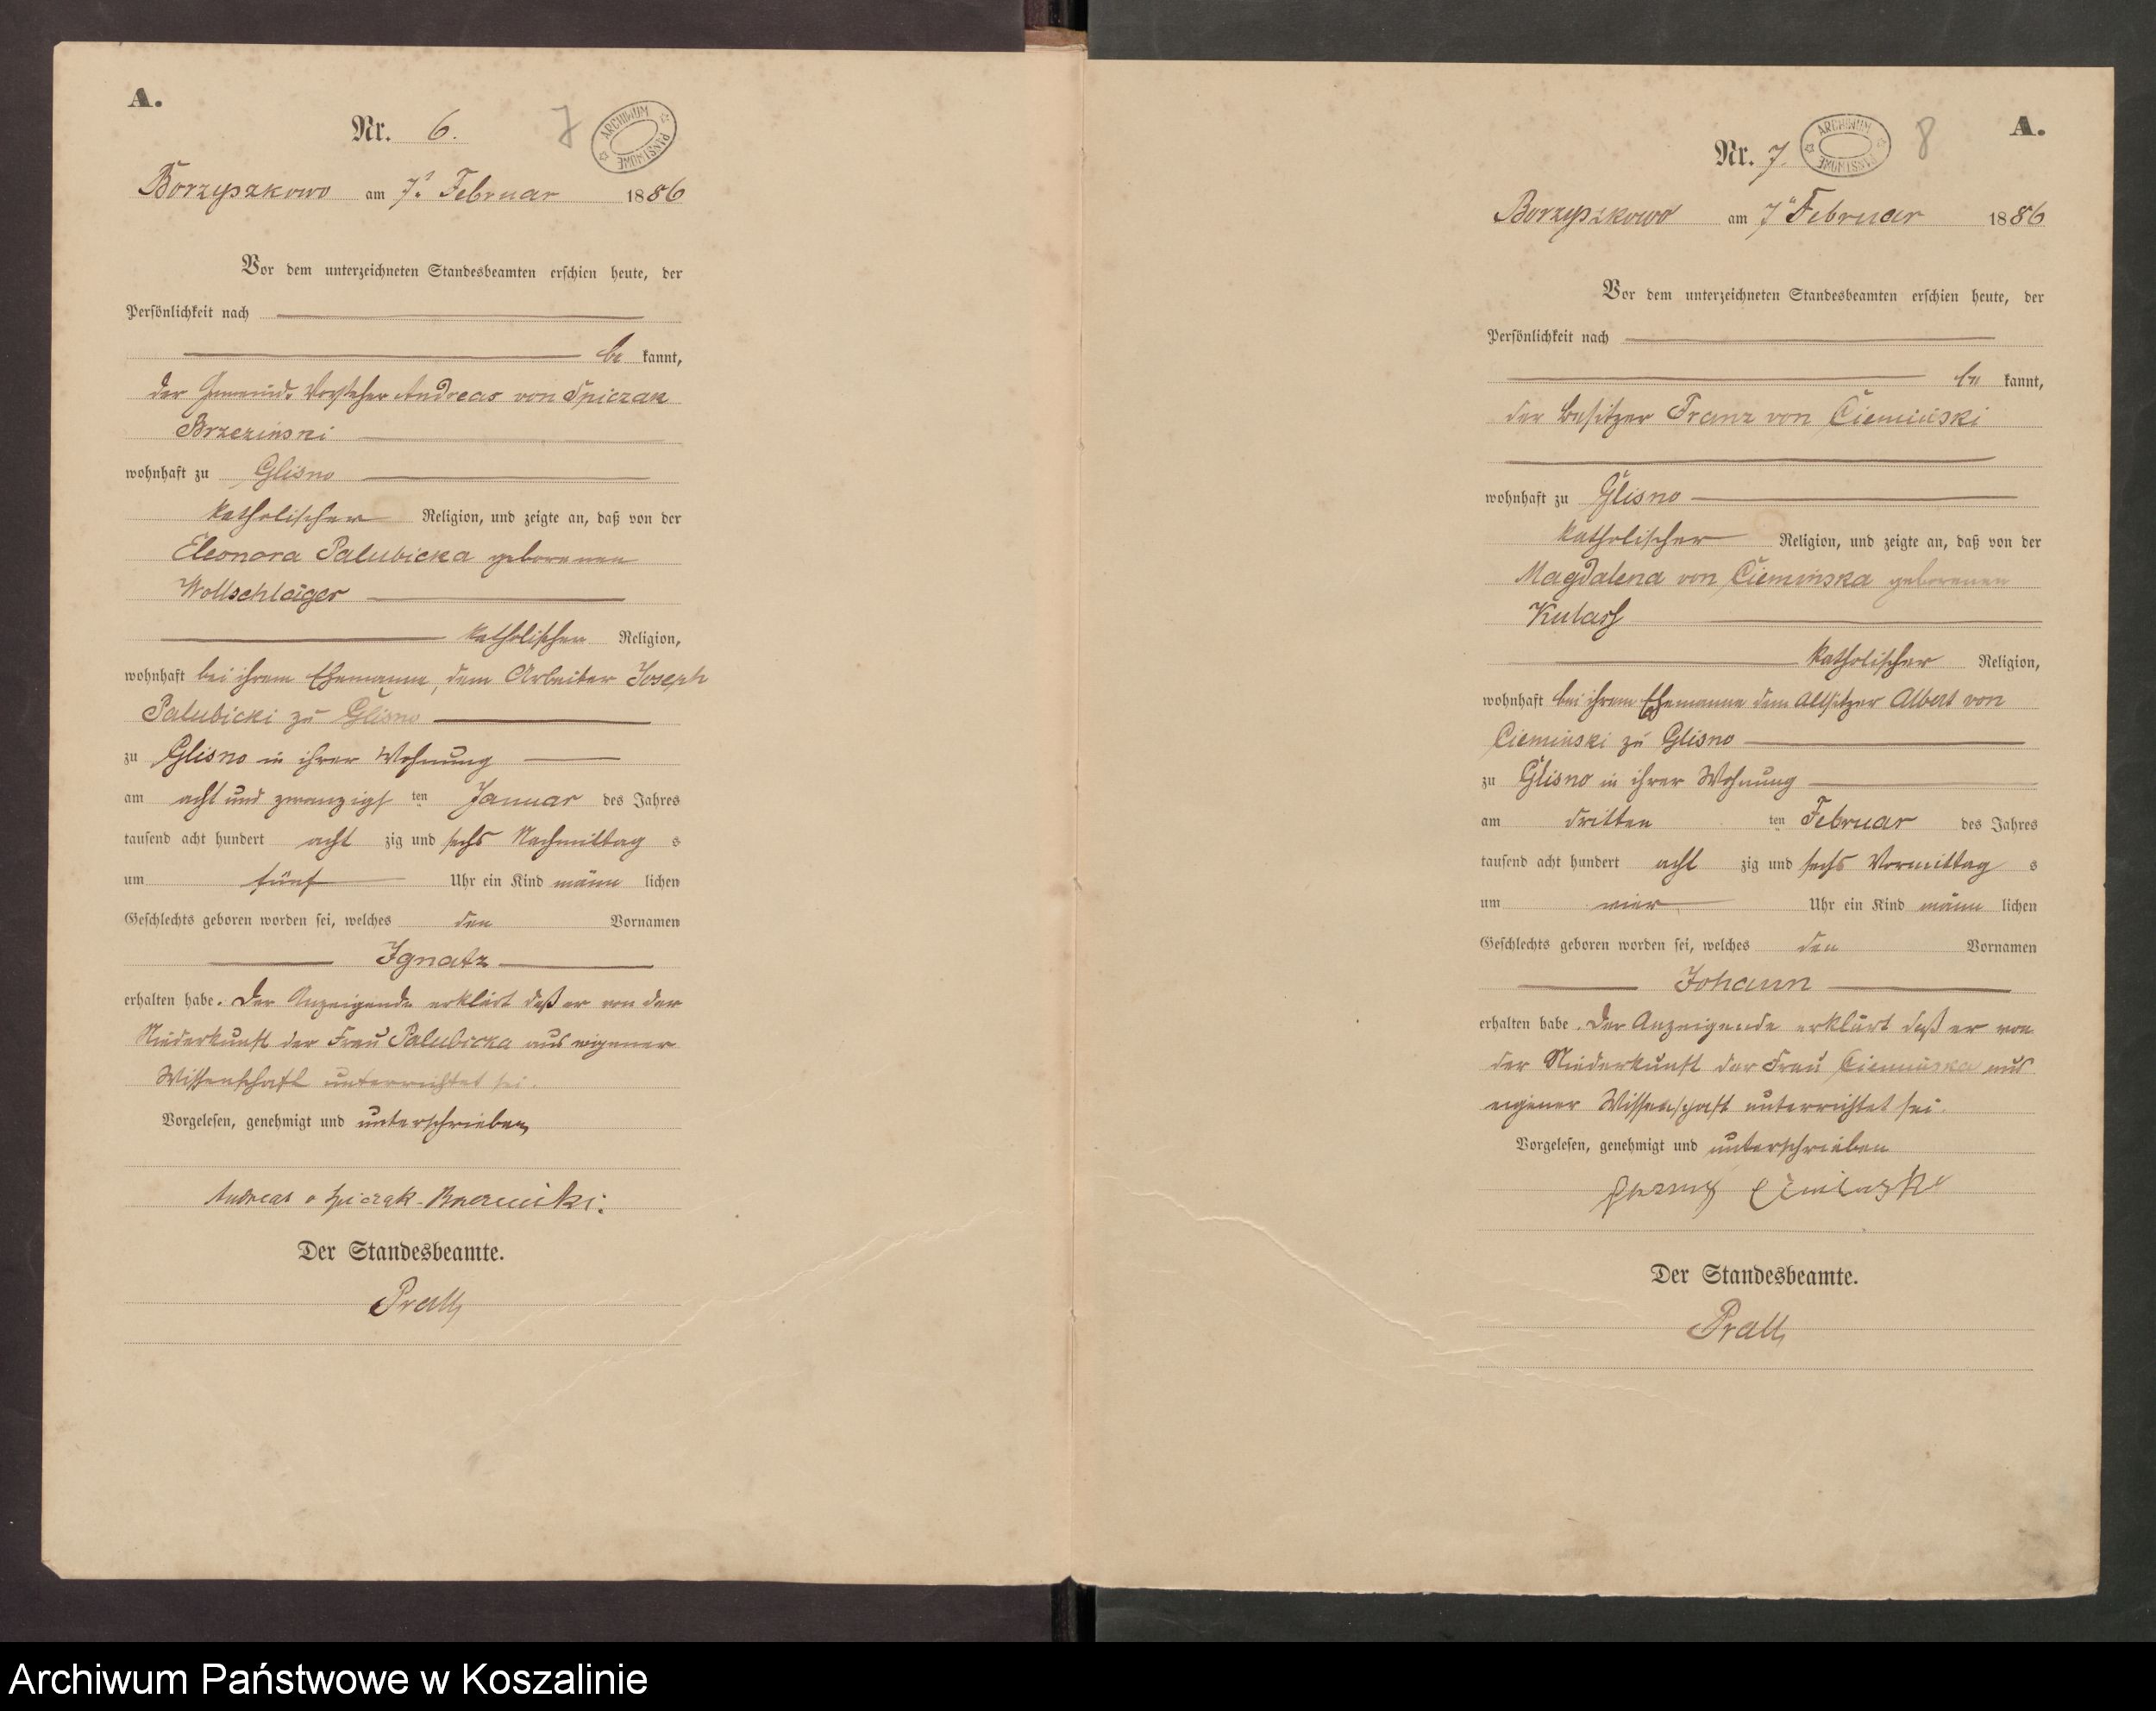 A.
Nr. 6.
7
ARCHIWUM PAŃSTWOWE
Borzyszkowo am 7. Februar 1886
Vor dem unterzeichneten Standesbeamten erschien heute, der
Persönlichkeit nach
be kannt,
der Gemeinde Vorsteher Andreas von Spiczak
Brzezinski
wohnhaft zu Glisno
katholischer Religion, und zeigte an, daß von der
Eleonora Palubicka geborenen
Wollschläger
katholischen Religion,
wohnhaft bei ihrem Ehemanne, dem Arbeiter Joseph
Palubicki zu Glisno
zu Glisno in ihrer Wohnung
am acht und zwanzigs ten Januar des Jahres
tausend acht hundert acht zig und sechs Nachmittag s
um fünf Uhr ein Kind männ lichen
Geschlechts geboren worden sei, welches den Vornamen
Ignatz
erhalten habe. Der Anzeigende erklärt daß er von der
Niederkunft der Frau Palubicka aus eigener
Wissenschaft unterrichtet sei.
Vorgelesen, genehmigt und unterschrieben
Andreas v Spiczak-
Der Standesbeamte.
A.
Nr. 7.
ARCHIWUM PAŃSTWOWE
8
Borzyszkowo am 7 Februar 1886
Vor dem unterzeichneten Standesbeamten erschien heute, der
Persönlichkeit nach
be kannt,
der Besitzer Franz von Ciemiński
wohnhaft zu Glisno
katholischer Religion, und zeigte an, daß von der
Magdalena von Ciemińska geborenen
katholischer Religion,
wohnhaft bei ihrem Ehemanne dem Altsitzer Albert von
Ciemiński zu Glisno
zu Glisno in ihrer Wohnung
am dritten ten Februar des Jahres
tausend acht hundert acht zig und sechs Vormittag s
um vier Uhr ein Kind männ lichen
Geschlechts geboren worden sei, welches den Vornamen
Johann
erhalten habe. Der Anzeigende erklärt daß er von
der Niederkunft der Frau Ciemińska aus
eigener Wissenschaft unterrichtet sei.
Vorgelesen, genehmigt und unterschrieben
Der Standesbeamte.
Archiwum Państwowe w Koszalinie